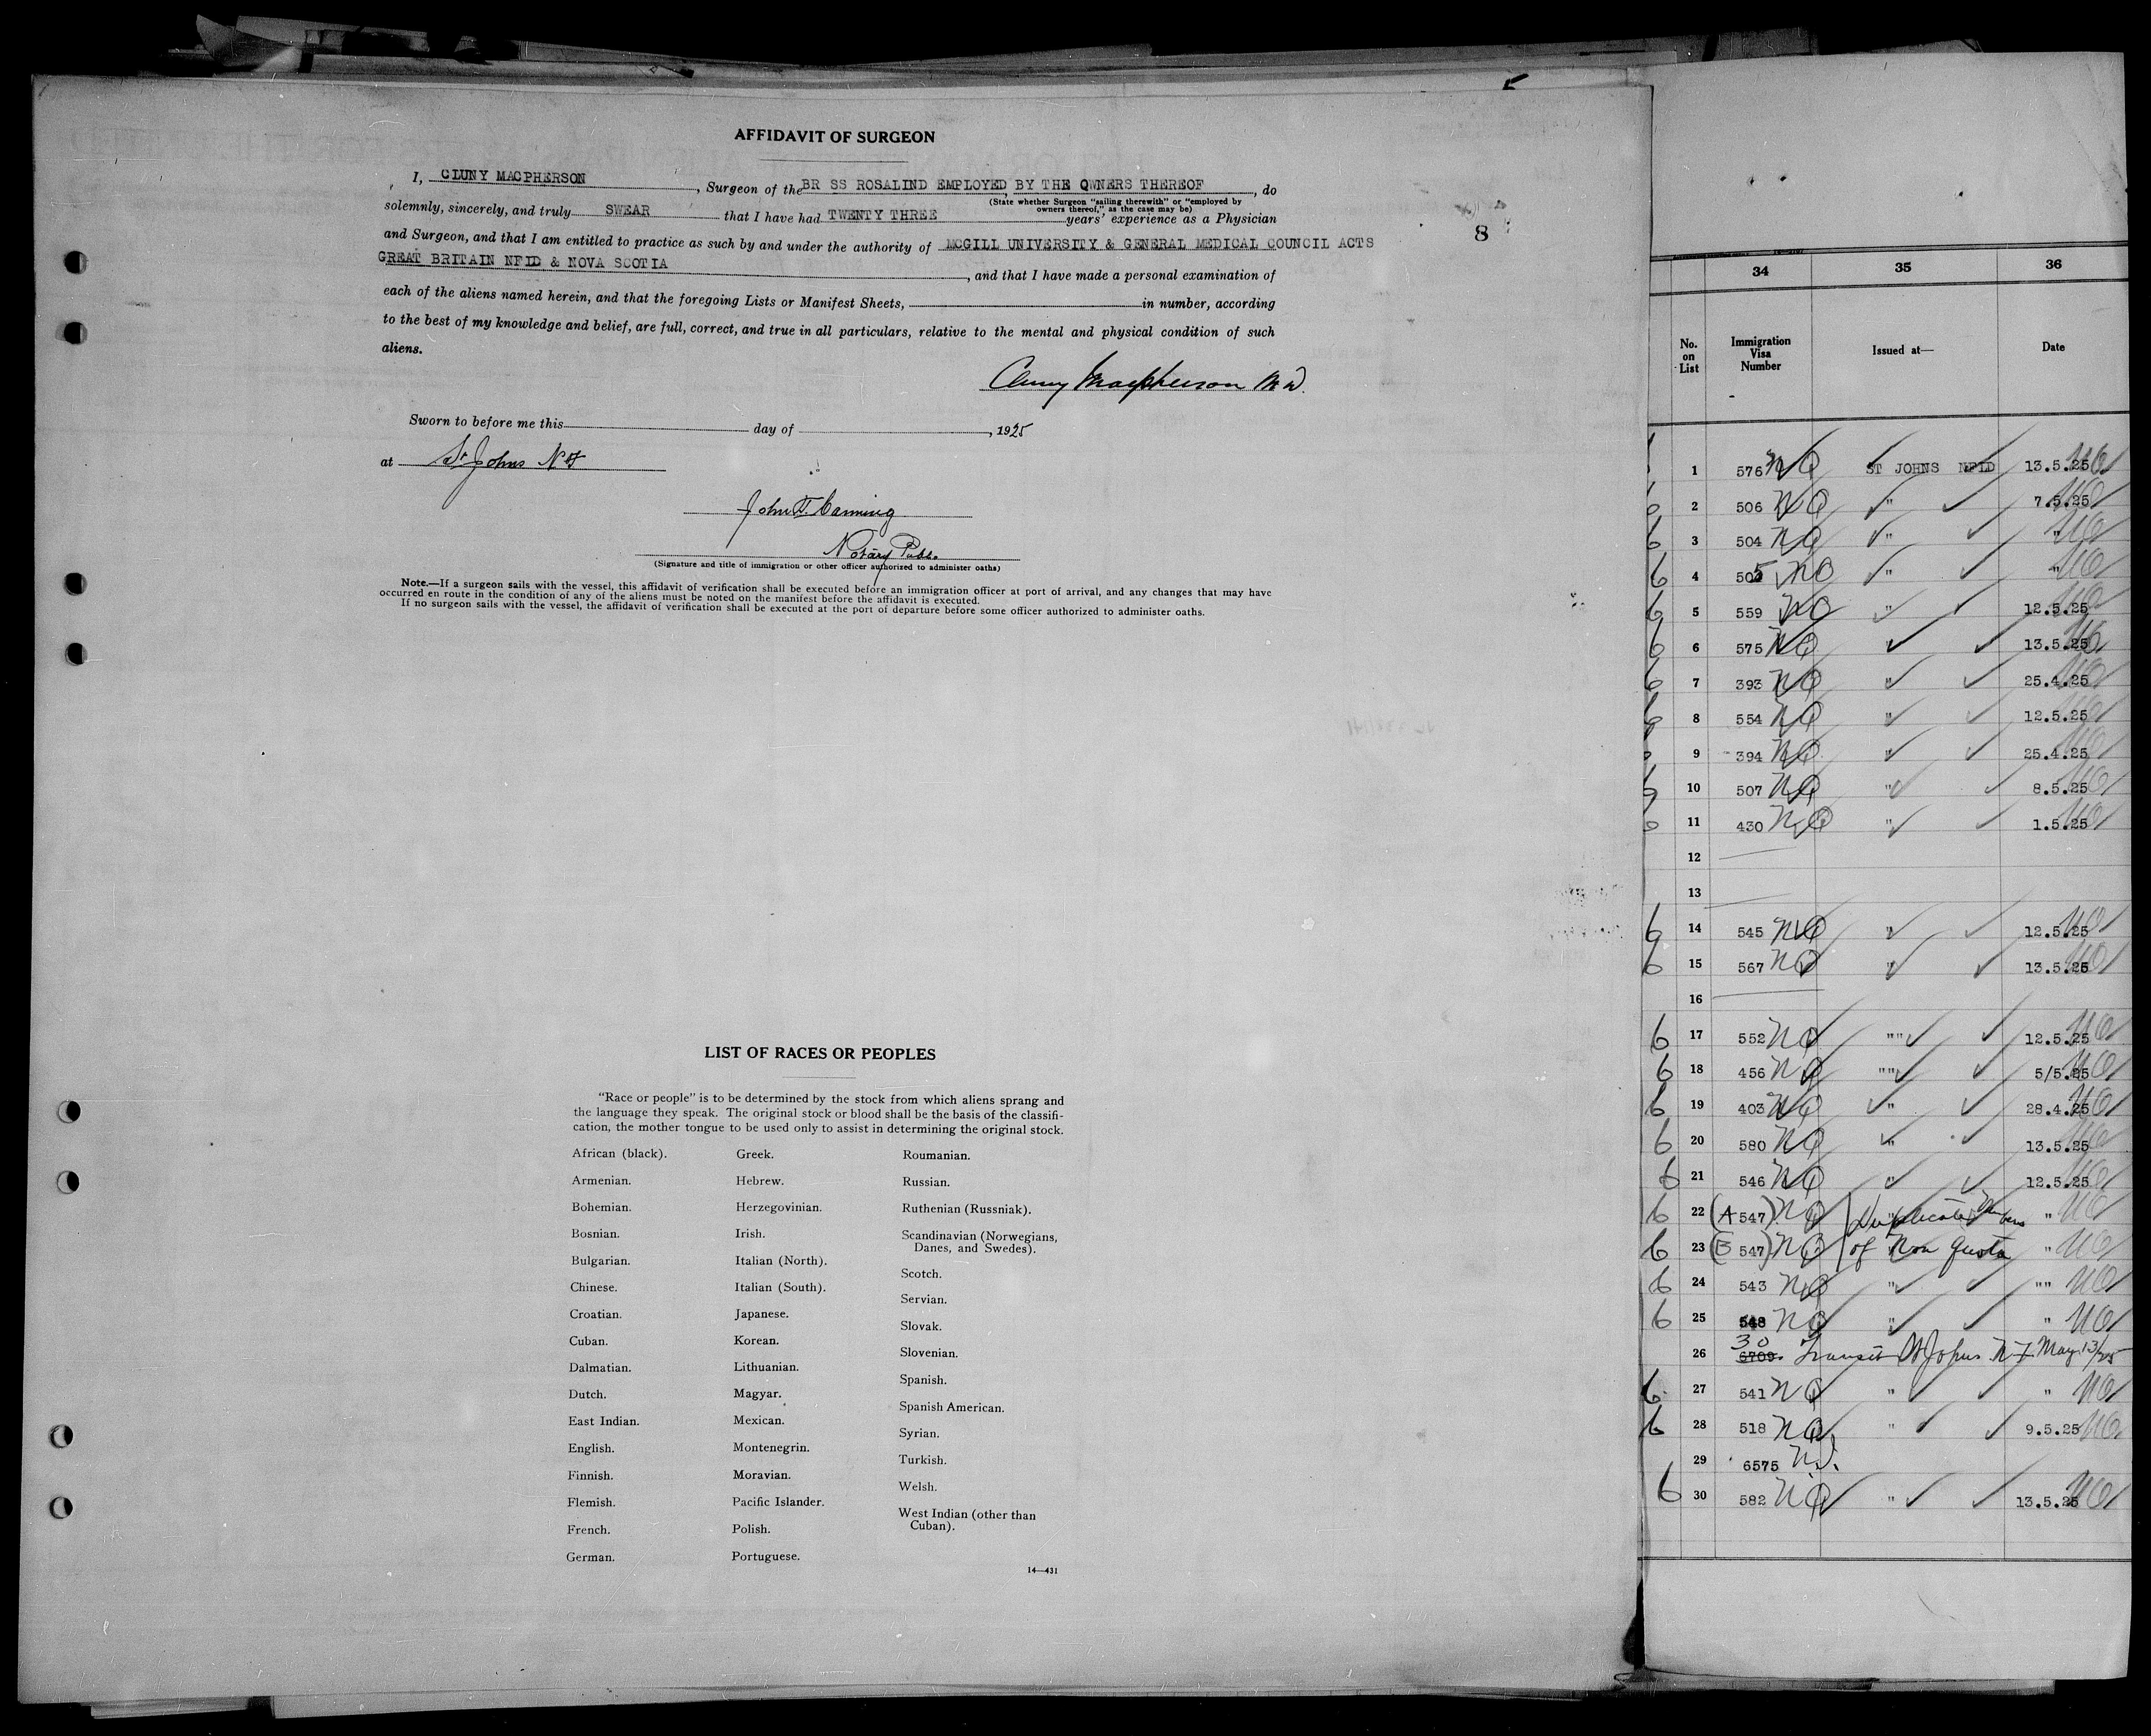 AFFIDAVIT OF SURGEON
I, CLUNY MACPHERSON, Surgeon of the BR SS ROSALIND EMPLOYED BY THE OWNERS THEREOF, do
(State whether Surgeon "sailing therewith" or "employed by
owners thereof," as the case may be)
solemnly, sincerely, and truly SWEAR that I have had TWENTY THREE years' experience as a Physician
and Surgeon, and that I am entitled to practice as such by and under the authority of MCGILL UNIVERSITY & GENERAL MEDICAL COUNCIL ACTS
GREAT BRITAIN NFID & NOVA SCOTIA, and that I have made a personal examination of
each of the aliens named herein, and that the foregoing Lists or Manifest Sheets, in number, according
to the best of my knowledge and belief, are full, correct, and true in all particulars, relative to the mental and physical condition of such
aliens.
Cluny Macpherson M.D.
Sworn to before me this day of , 1925
at St Johns NF
John T. Canning
Notary Publ.
(Signature and title of immigration or other officer authorized to administer oaths)
Note.—If a surgeon sails with the vessel, this affidavit of verification shall be executed before an immigration officer at port of arrival, and any changes that may have
occurred en route in the condition of any of the aliens must be noted on the manifest before the affidavit is executed.
If no surgeon sails with the vessel, the affidavit of verification shall be executed at the port of departure before some officer authorized to administer oaths.
8
LIST OF RACES OR PEOPLES
"Race or people" is to be determined by the stock from which aliens sprang and
the language they speak. The original stock or blood shall be the basis of the classifi-
cation, the mother tongue to be used only to assist in determining the original stock.
African (black).
Armenian.
Bohemian.
Bosnian.
Bulgarian.
Chinese.
Croatian.
Cuban.
Dalmatian.
Dutch.
East Indian.
English.
Finnish.
Flemish.
French.
German.
Greek.
Hebrew.
Herzegovinian.
Irish.
Italian (North).
Italian (South).
Japanese.
Korean.
Lithuanian.
Magyar.
Mexican.
Montenegrin.
Moravian.
Pacific Islander.
Polish.
Portuguese.
Roumanian.
Russian.
Ruthenian (Russniak).
Scandinavian (Norwegians,
Danes, and Swedes).
Scotch.
Servian.
Slovak.
Slovenian.
Spanish.
Spanish American.
Syrian.
Turkish.
Welsh.
West Indian (other than
Cuban).
14—431
34 35 36
No. on List Immigration Visa Number Issued at— Date
1 576 NQ ST JOHNS NFLD 13.5.25
6 2 506 NQ " 7.5.25
6 3 504 NQ " "
6 4 505 NQ " "
6 5 559 NQ " 12.5.25
6 6 575 NQ " 13.5.25
6 7 393 NQ " 25.4.25
6 8 554 NQ " 12.5.25
6 9 394 NQ " 25.4.25
6 10 507 NQ " 8.5.25
6 11 430 NQ " 1.5.25
12
13
6 14 545 NQ " 12.5.25
6 15 567 NQ " 13.5.25
16
6 17 552 NQ "" 12.5.25
6 18 456 NQ "" 5/5.25
6 19 403 NQ " 28.4.25
6 20 580 NQ " 13.5.25
6 21 546 NQ " 12.5.25
6 22 (A 547) NQ Duplicate Numbers "
6 23 (B 547) NQ of Non Quota "
6 24 543 NQ " ""
6 25 548 NQ " "
26 30 6709 Transit St Johns N.F. May 13/25
6 27 541 NQ " "
6 28 518 NQ " 9.5.25
29 6575
6 30 582 NQ " 13.5.25